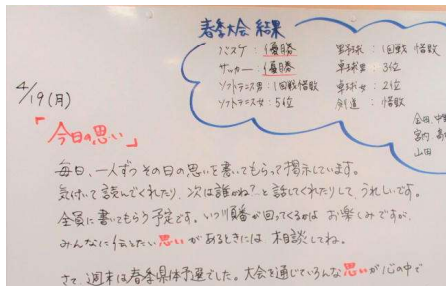 春季大会 結果
バスケ：優勝
サッカー：優勝
ソフトテニス男：1回戦惜敗
ソフトテニス女：5位
野球：1回戦 惜敗
卓球男：3位
卓球女：2位
剣道：惜敗
金田、中
宮内
山田
4/19(月)
「今日の思い」
毎日、一人ずつその日の思いを書いてもらって掲示しています。
気付いて読んでくれたり、次は誰かね？と話してくれたりして、うれしいです。
全員に書いてもらう予定です。いつ順番が回ってくるかは お楽しみですが、
みんなに伝えたい思いがあるときには 相談してね。
さて、週末は春季県体予選でした。大会を通じていろんな思いが心の中で